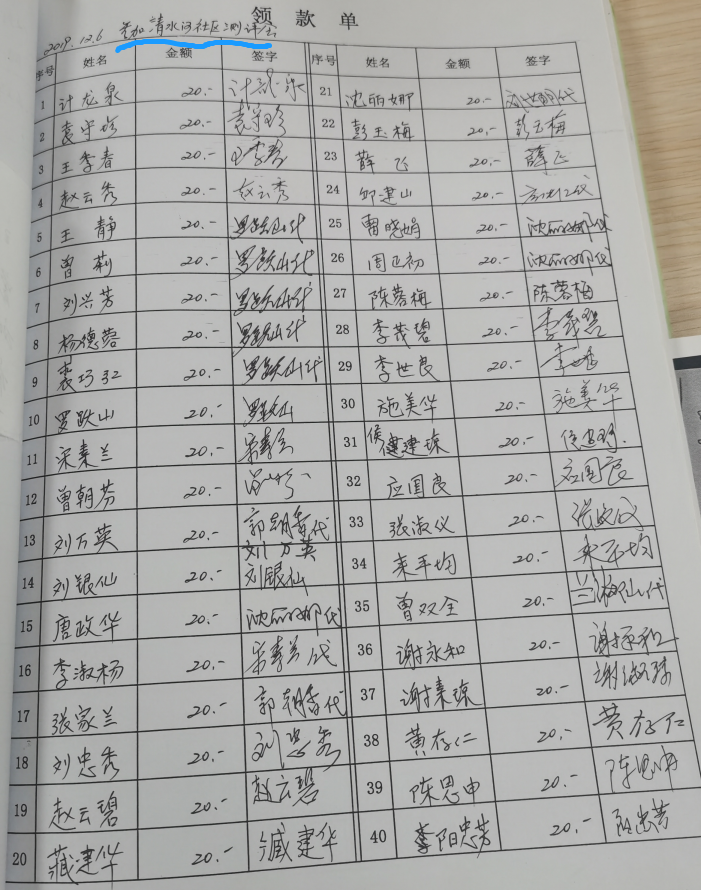 领款单
2019.12.6 参加清水河社区测评会
序号 姓名 金额 签字 序号 姓名 金额 签字
1 计龙泉 20.- 计龙泉 21 沈丽娜 20.-
2 袁守珍 20.- 袁守珍 22 彭玉梅 20.- 彭玉梅
3 王季春 20.- 王季春 23 薛飞 20.- 薛飞
4 赵云秀 20.- 赵云秀 24 邹建山 20.-
5 王静 20.- 罗跃山代 25 曹晓娟 20.- 沈丽娜代
6 曾莉 20.- 罗跃山代 26 周正初 20.- 沈丽娜代
7 刘兴芳 20.- 罗跃山代 27 陈蓉梅 20.- 陈蓉梅
8 杨德蓉 20.- 罗跃山代 28 李茂碧 20.- 李茂碧
9 袁巧 20.- 罗跃山代 29 李世良 20.-
10 罗跃山 20.- 罗跃山 30 施美华 20.- 施美华
11 宋素兰 20.- 31 侯建琼 20.-
12 曾朝芬 20.- 32 应国良 20.- 应国良
13 刘万英 20.- 郭朝香代 刘万英 33 张淑仪 20.-
14 刘银仙 20.- 刘银仙 34 来平均 20.- 来平均
15 唐政华 20.- 沈丽娜代 35 曾双全 20.-
16 李淑杨 20.- 宋素兰代 36 谢永和 20.-
17 张家兰 20.- 郭朝香代 37 谢素琼 20.-
18 刘忠秀 20.- 刘忠秀 38 黄存仁 20.- 黄存仁
19 赵云碧 20.- 赵云碧 39 陈思申 20.-
20 臧建华 20.- 臧建华 40 欧阳忠芳 20.-